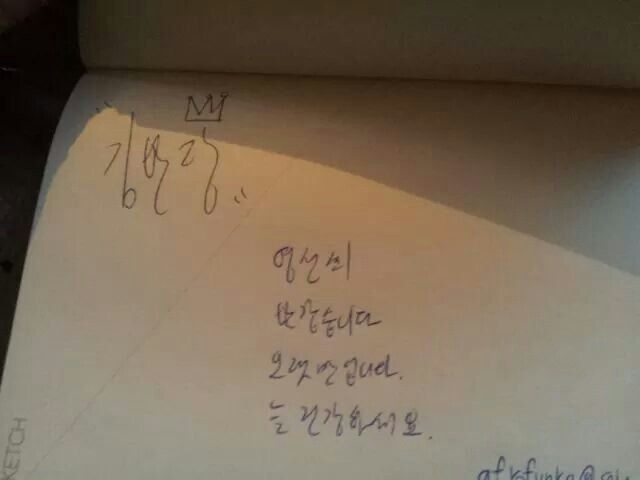 "김반장"
영선씨
반갑습니다
오랫만입니다.
늘 건강하세요.
KETCH